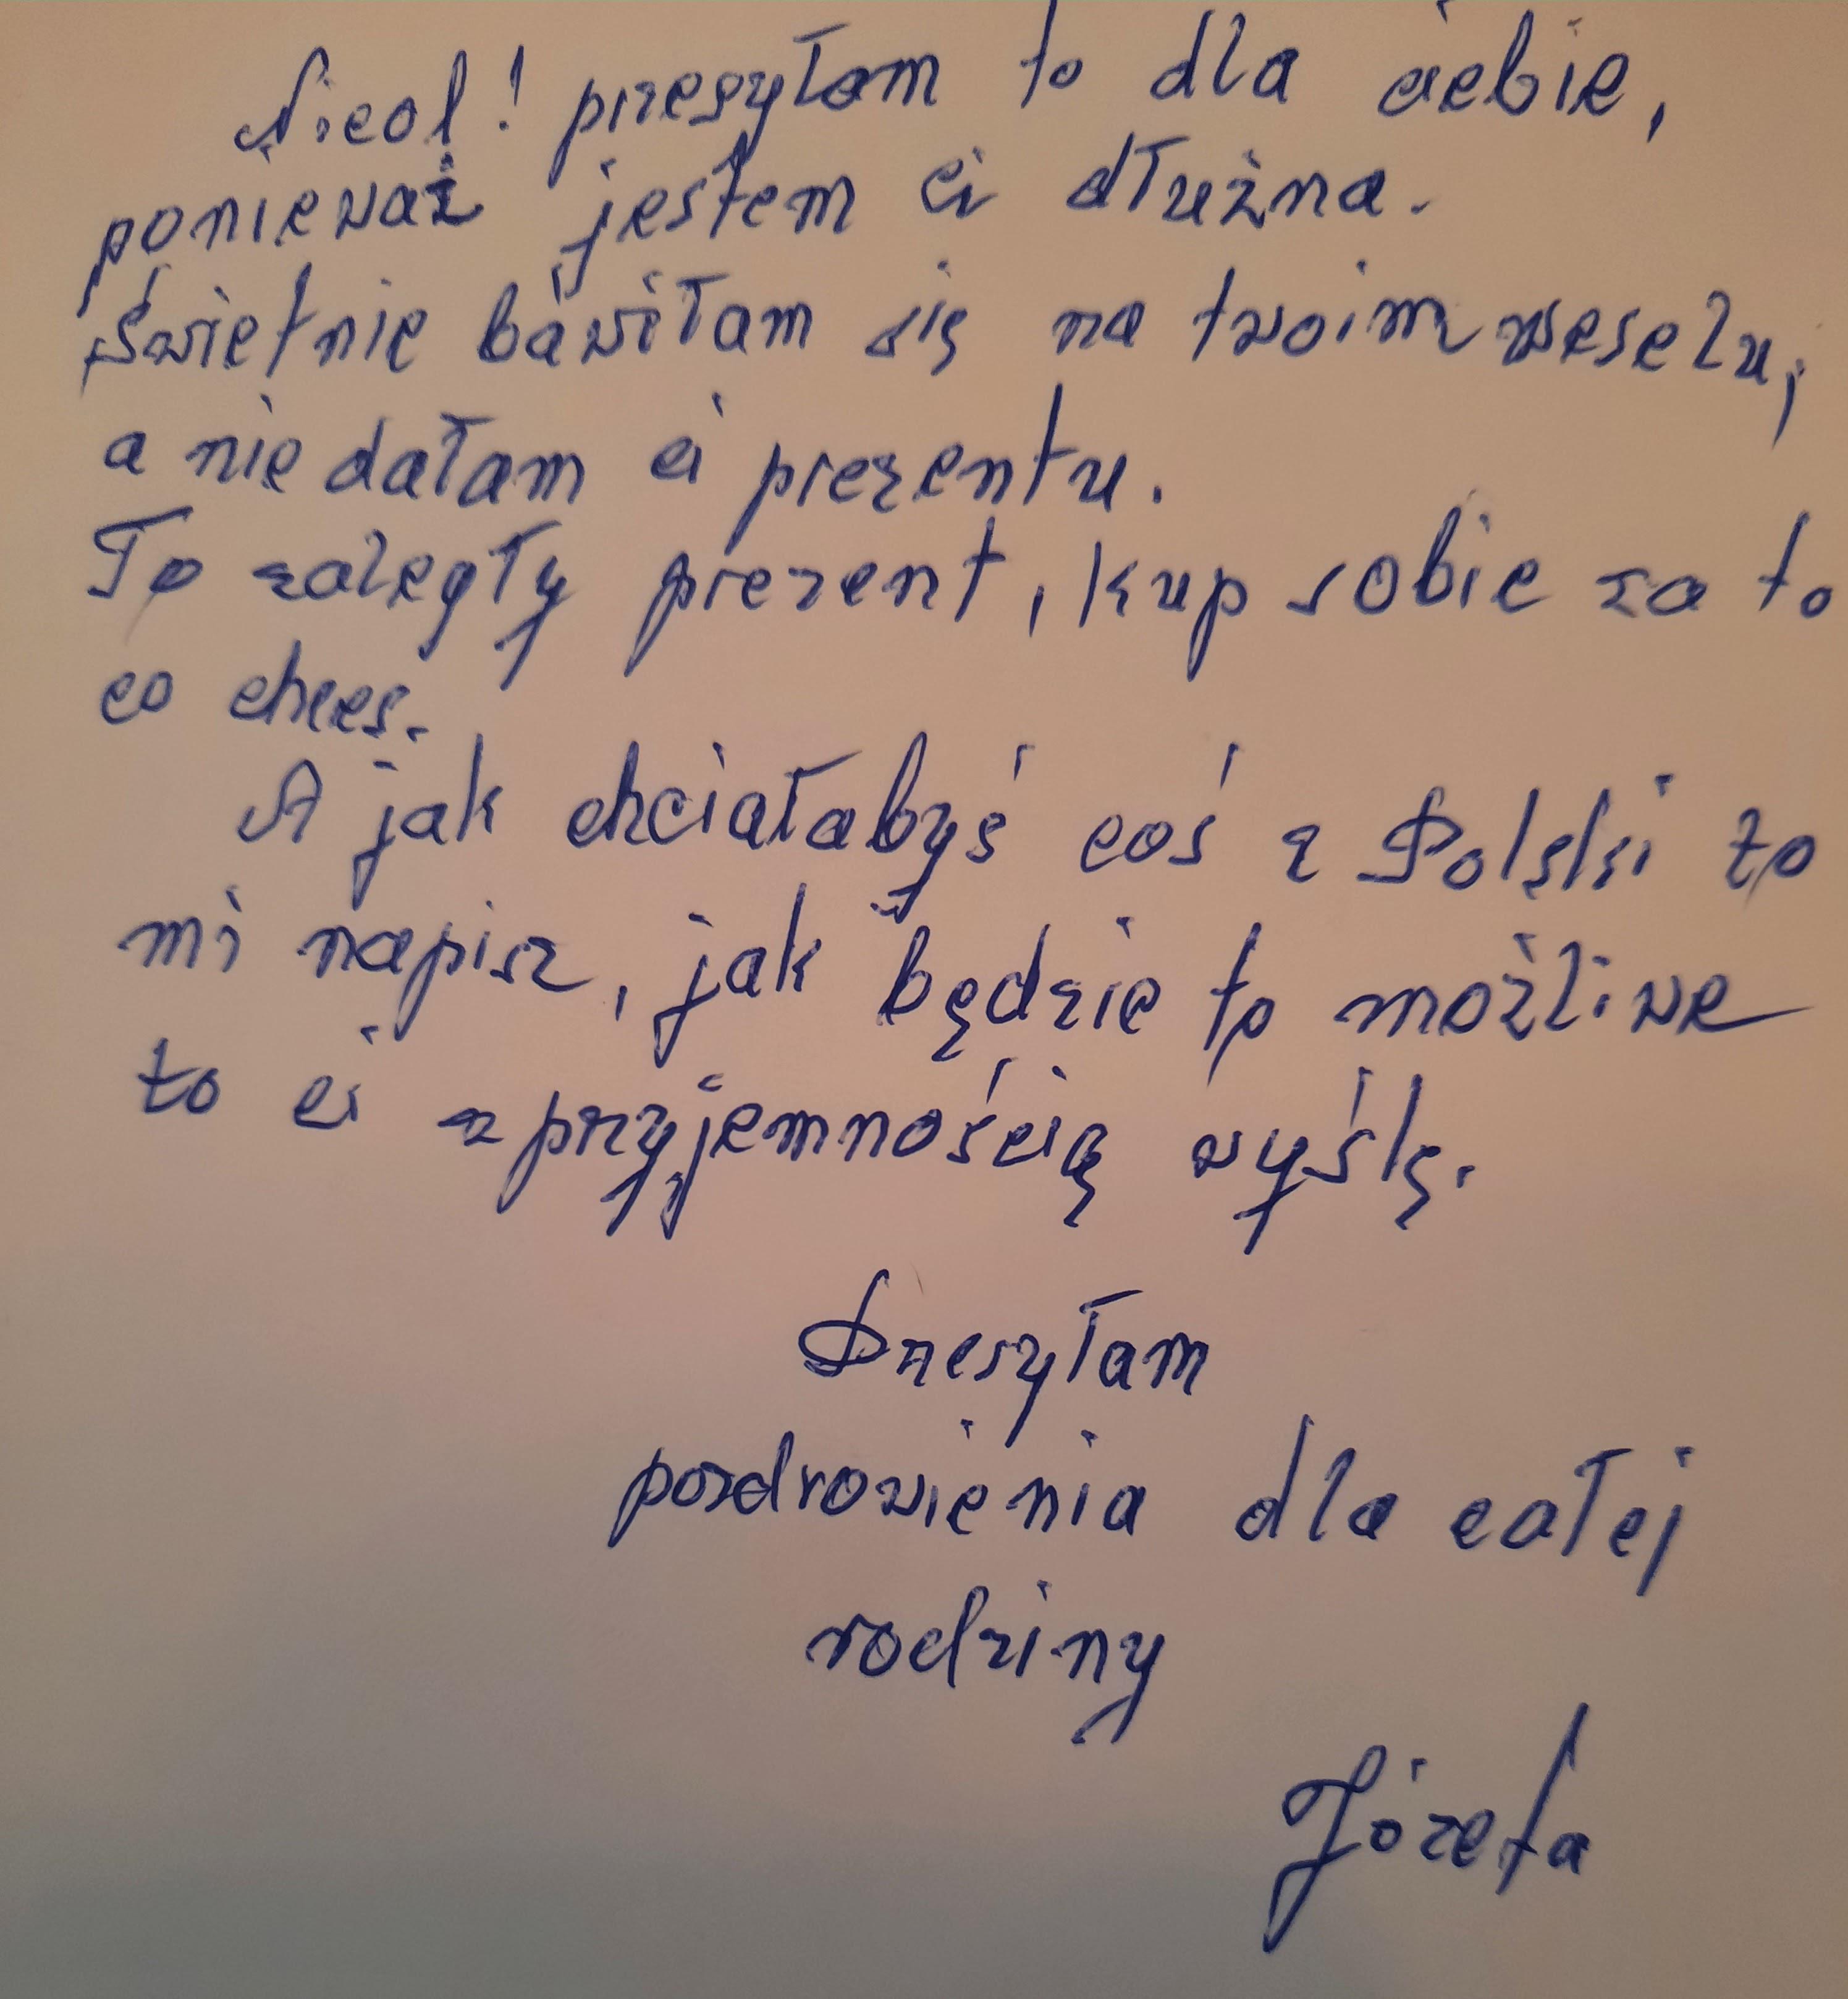 Nicol! przesyłam to dla ciebie,
ponieważ jestem ci dłużna.
Świetnie bawiłam się na twoim weselu,
a nie dałam ci prezentu.
To zaległy prezent, kup sobie za to
co chces.
A jak chciałabyś coś z Polski to
mi napisz, jak będzie to możliwe
to ci z przyjemnością wyślę.
Przesyłam
pozdrowienia dla całej
rodziny
Józefa